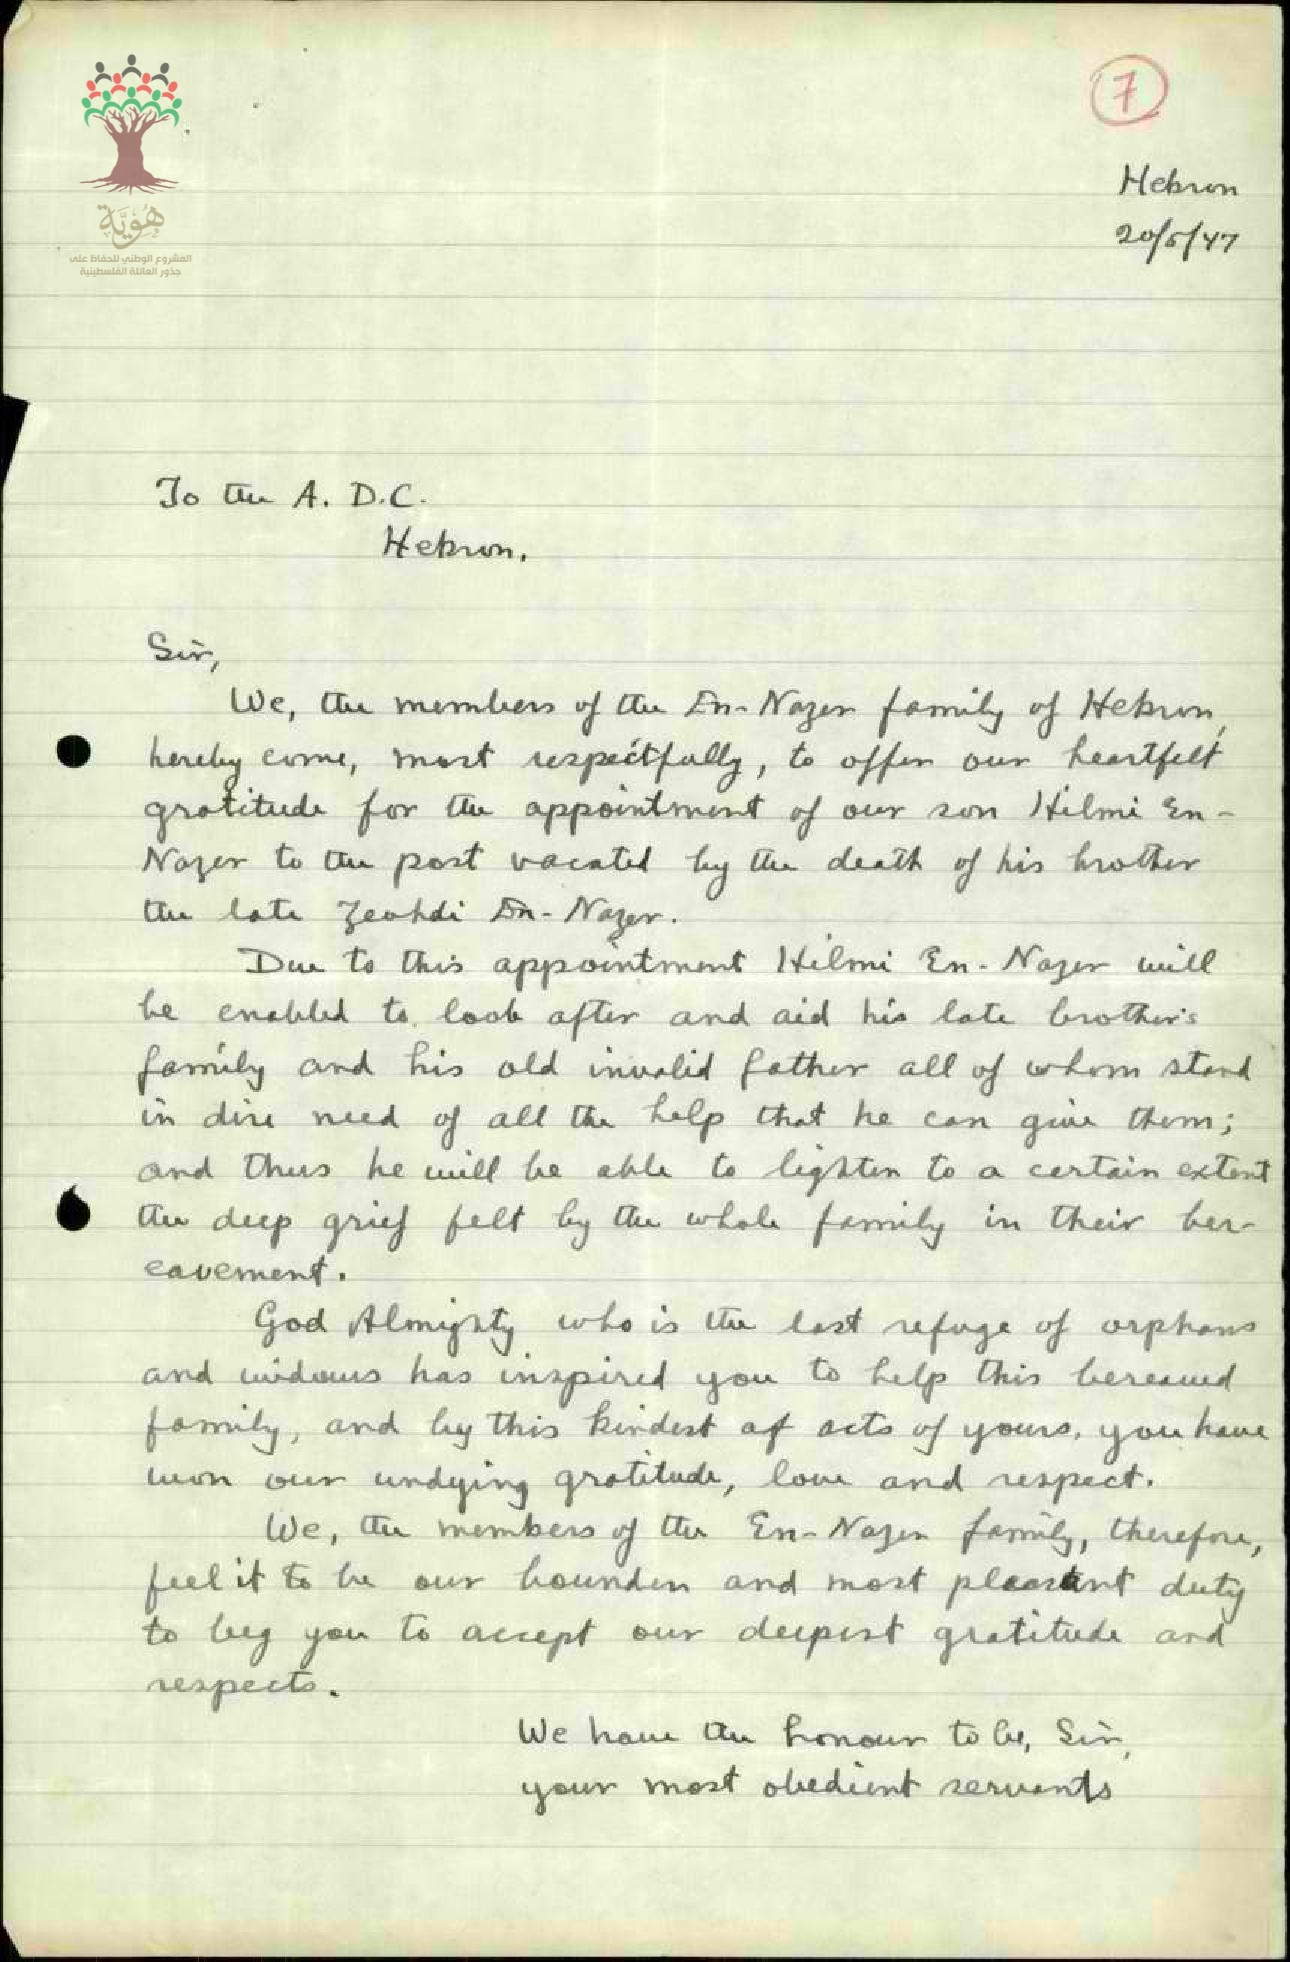 7
هُوِيَّة
المشروع الوطني للحفاظ على
جذور العائلة الفلسطينية
Hebron
20/5/47
To the A. D.C.
Hebron.
Sir,
We, the members of the En-Nazer family of Hebron,
hereby come, most respectfully, to offer our heartfelt
gratitude for the appointment of our son Hilmi En-
Nazer to the post vacated by the death of his brother
the late En-Nazer.
Due to this appointment Hilmi En-Nazer will
be enabled to look after and aid his late brother's
family and his old invalid father all of whom stand
in dire need of all the help that he can give them;
and thus he will be able to lighten to a certain extent
the deep grief felt by the whole family in their ber-
eavement.
God Almighty who is the last refuge of orphans
and widows has inspired you to help this bereaved
family, and by this kindest of acts of yours, you have
won our undying gratitude, love and respect.
We, the members of the En-Nazer family, therefore,
feel it to be our bounden and most pleasant duty
to beg you to accept our deepest gratitude and
respects.
We have the honour to be, Sir,
your most obedient servants